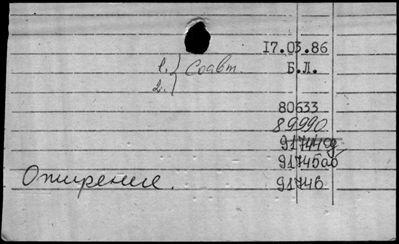 17.03.86
1. } Соавт. Б.Л.
2.
80633
89990
91744
91745аб
Ожирение. 9174в